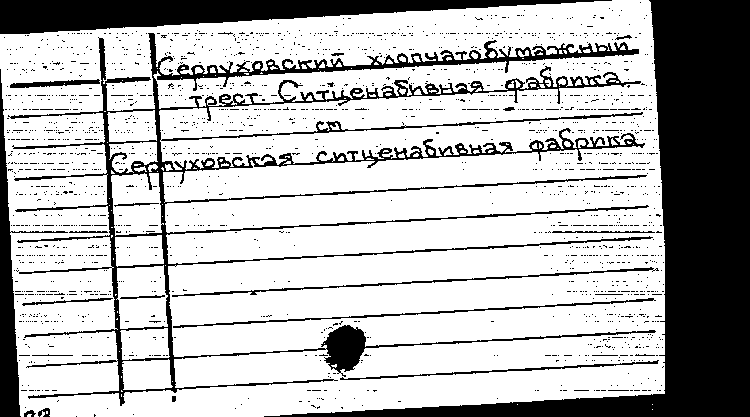 Серпуховский хлопчатобумажный
трест. Ситценабивная фабрика
см
Серпуховская ситценабивная фабрика